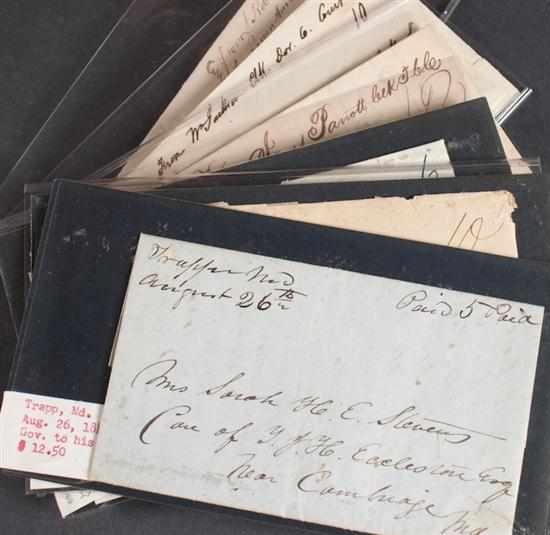 From Wm Dor. C. Court 10
Parrott
10
Trappe Md
August 26th
Paid 5 Paid
Mrs Sarah H. E. Stevens
Care of T. J. H. Eccleston Esq
Near Cambridge
Md
Trapp, Md.
Aug. 26, 18
Gov. to his
$ 12.50